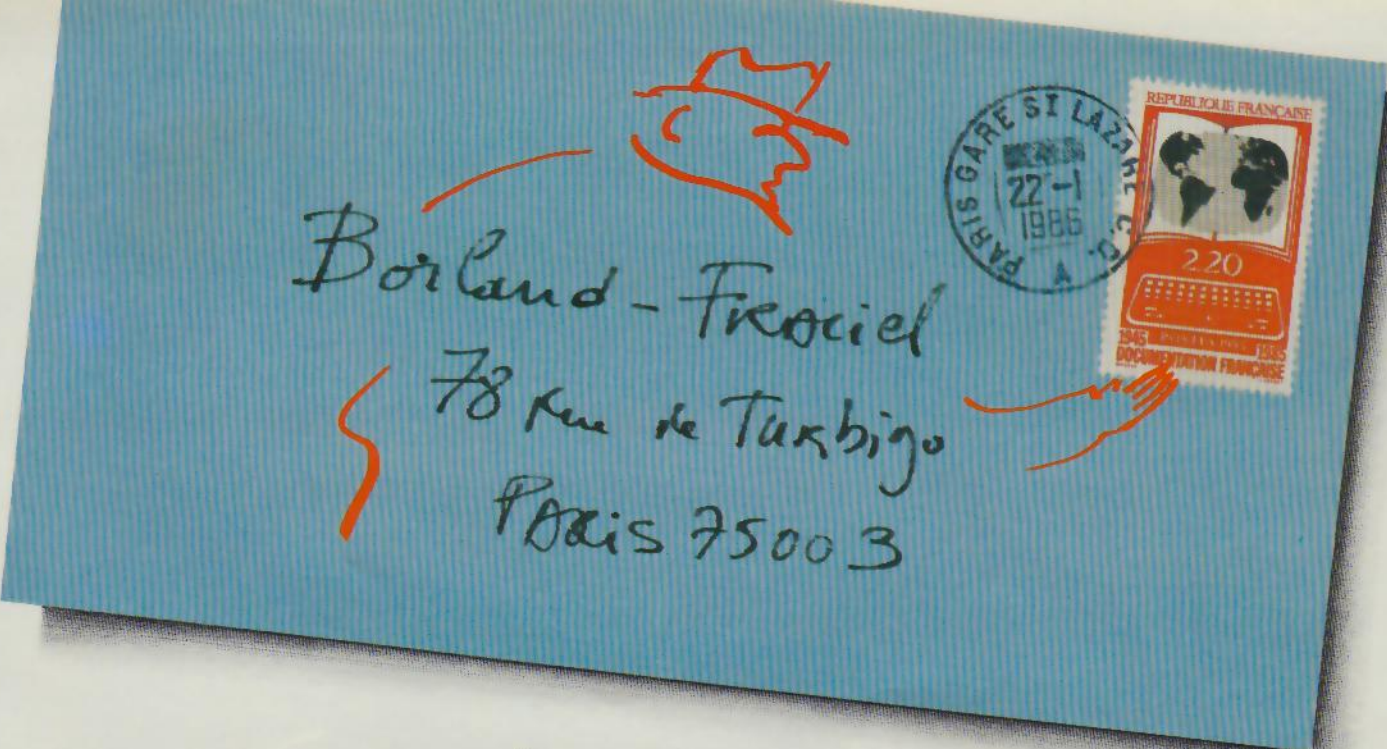 Borland - Fraciel
78 Rue de Turbigo
Paris 75003
PARIS GARE ST LAZARE C.D. A
22-1
1986
REPUBLIQUE FRANÇAISE
2.20
1945 1985
DOCUMENTATION FRANÇAISE